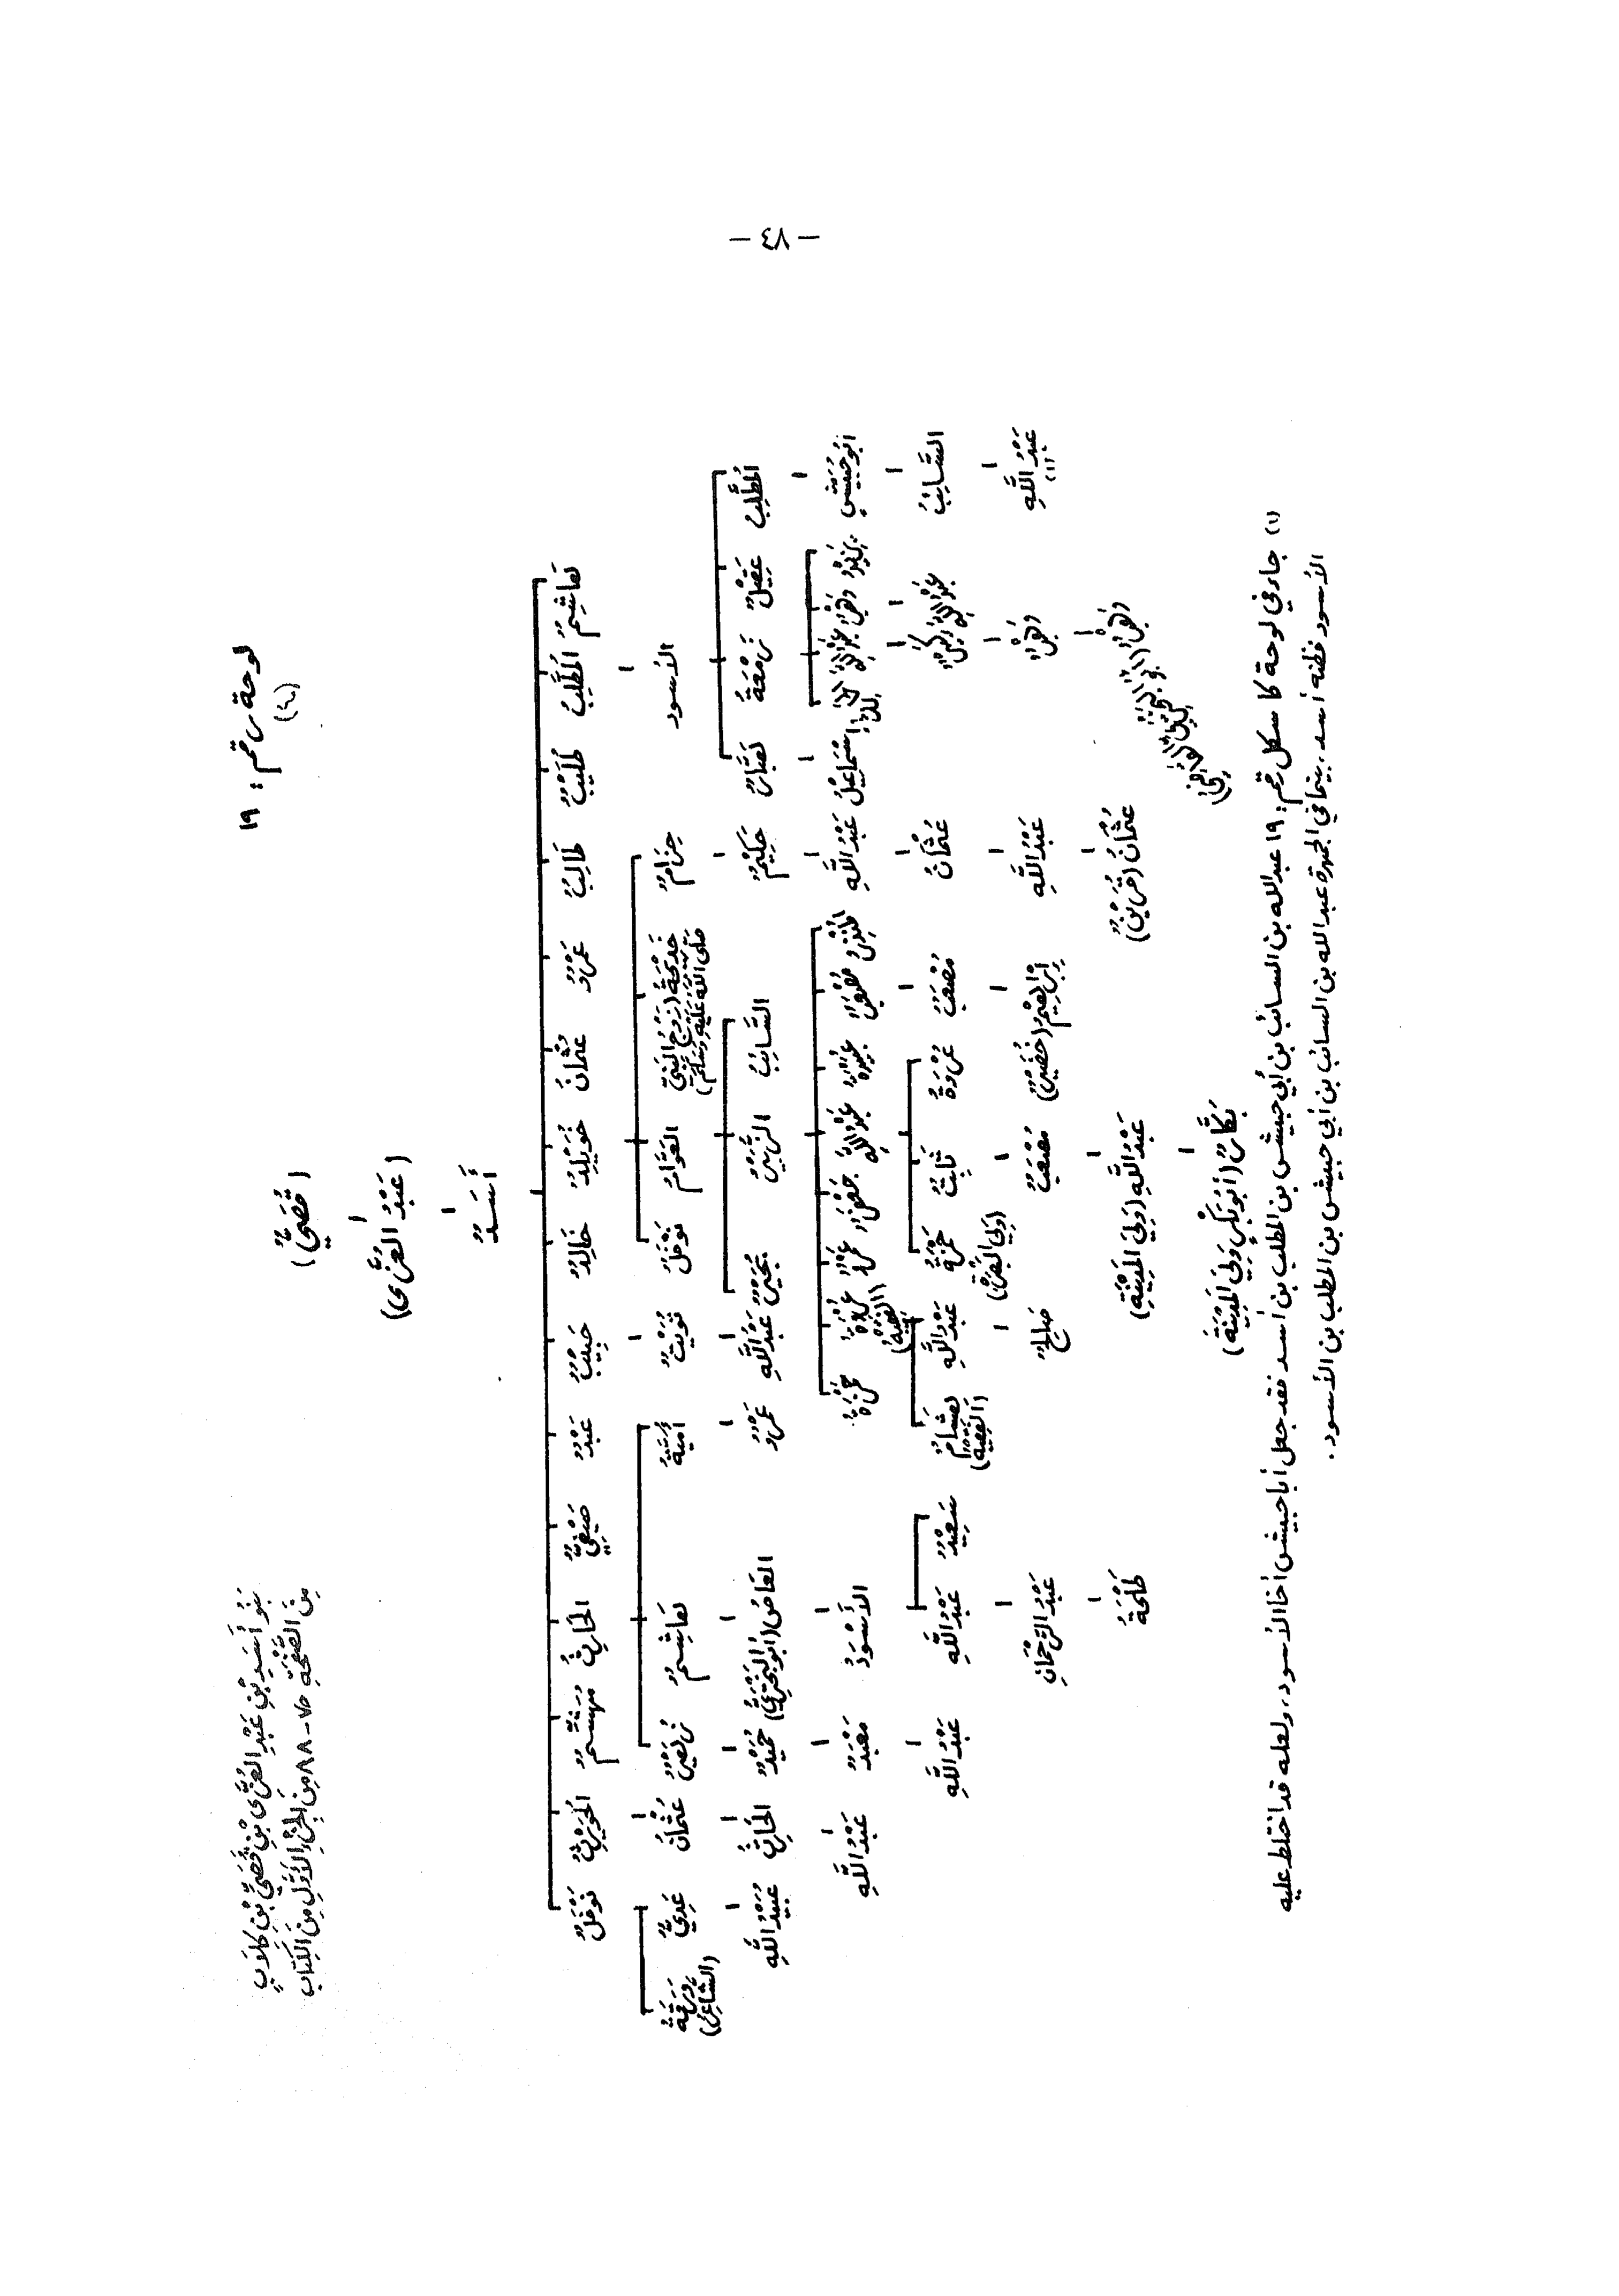 - ٧٣ -
لوحة رقم : ١٩
بَنُو أَسَدِ بْنِ عَبْدِ العُزَّى بْنِ قُصَيِّ بْنِ كِلَابٍ
مِنَ الصَّفْحَةِ ٧٥-٨٨ مِنَ الجُزْءِ الأَوَّلِ مِنَ الكِتَابِ
(قُصَيٌّ)
(عَبْدُ العُزَّى)
أَسَدٌ
هَاشِمٌ المُطَّلِبُ طُلَيْبٌ طَالِبٌ عَمْرٌو عُثْمَانُ خُوَيْلِدٌ خَالِدٌ حَبِيبٌ عَبْدٌ صَيْفِيٌّ الحَارِثُ مُهَشِّمٌ الحُوَيْرِثُ نَوْفَلٌ
الأسود حِزَامٌ خَدِيجَةُ (زَوْجُ النَّبِيِّ صَلَّى اللهُ عَلَيْهِ وَسَلَّمَ) العَوَّامُ نَوْفَلٌ تُوَيْتٌ أُمَيَّةُ هَاشِمٌ زُهَيْرٌ عُثْمَانُ عَدِيٌّ وَرَقَةُ (الشَّاعِرُ)
المُطَّلِبُ عَقِيلٌ زَمْعَةُ هَبَّارٌ حَكِيمٌ السَّائِبُ الزُّبَيْرُ بُجَيْرٌ عَبْدُ اللَّهِ عَمْرٌو العَاصُ (أَبُو البَخْتَرِيِّ) حُمَيْدٌ الحَارِثُ عُبَيْدُ اللَّهِ
أَبُو حُبَيْشٍ يَزِيدُ وَهْبٌ عَبْدُ اللَّهِ إِسْمَاعِيلُ عَبْدُ اللَّهِ المُنْذِرُ مُصْعَبٌ عُبَيْدَةُ عَبْدُ اللَّهِ جَعْفَرٌ عَمْرٌو عُرْوَةُ (الفَقِيهُ) حَمْزَةُ الأَسْوَدُ مَعْبَدٌ عَبْدُ اللَّهِ
السَّائِبُ عَبْدُ اللَّهِ عُثْمَانُ مُصْعَبٌ عُرْوَةُ ثَابِتٌ حَمْزَةُ (وَلِيَ البَصْرَةَ) عَبْدُ اللَّهِ هِشَامٌ (الفَقِيهُ) سَعِيدٌ عَبْدُ اللَّهِ عَبْدُ اللَّهِ
عَبْدُ اللَّهِ (١) وَهْبٌ عَبْدُ اللَّهِ إِبْرَاهِيمُ (خُضَيْرٌ) مُصْعَبٌ صَالِحٌ عَبْدُ الرَّحْمَانِ
وَهْبٌ عُثْمَانُ (قُرَيْنٌ) عَبْدُ اللَّهِ (وَلِيَ المَدِينَةِ) طَلْحَةُ
بَكَّارٌ (أَبُو بَكْرٍ وَلِيَ المَدِينَةَ)
(١) جاء في لوحة كاسكل رقم : ١٩ عبد الله بن السائب بن أبي حبيش بن المطلب بن أسد فقد جعل أبا حبيش أخا الأسود، ولعله قد اختلط عليه
الأسود فظنه أسد، بينما في الجمهرة عبد الله بن السائب بن أبي حبيش بن المطلب بن الأسود .